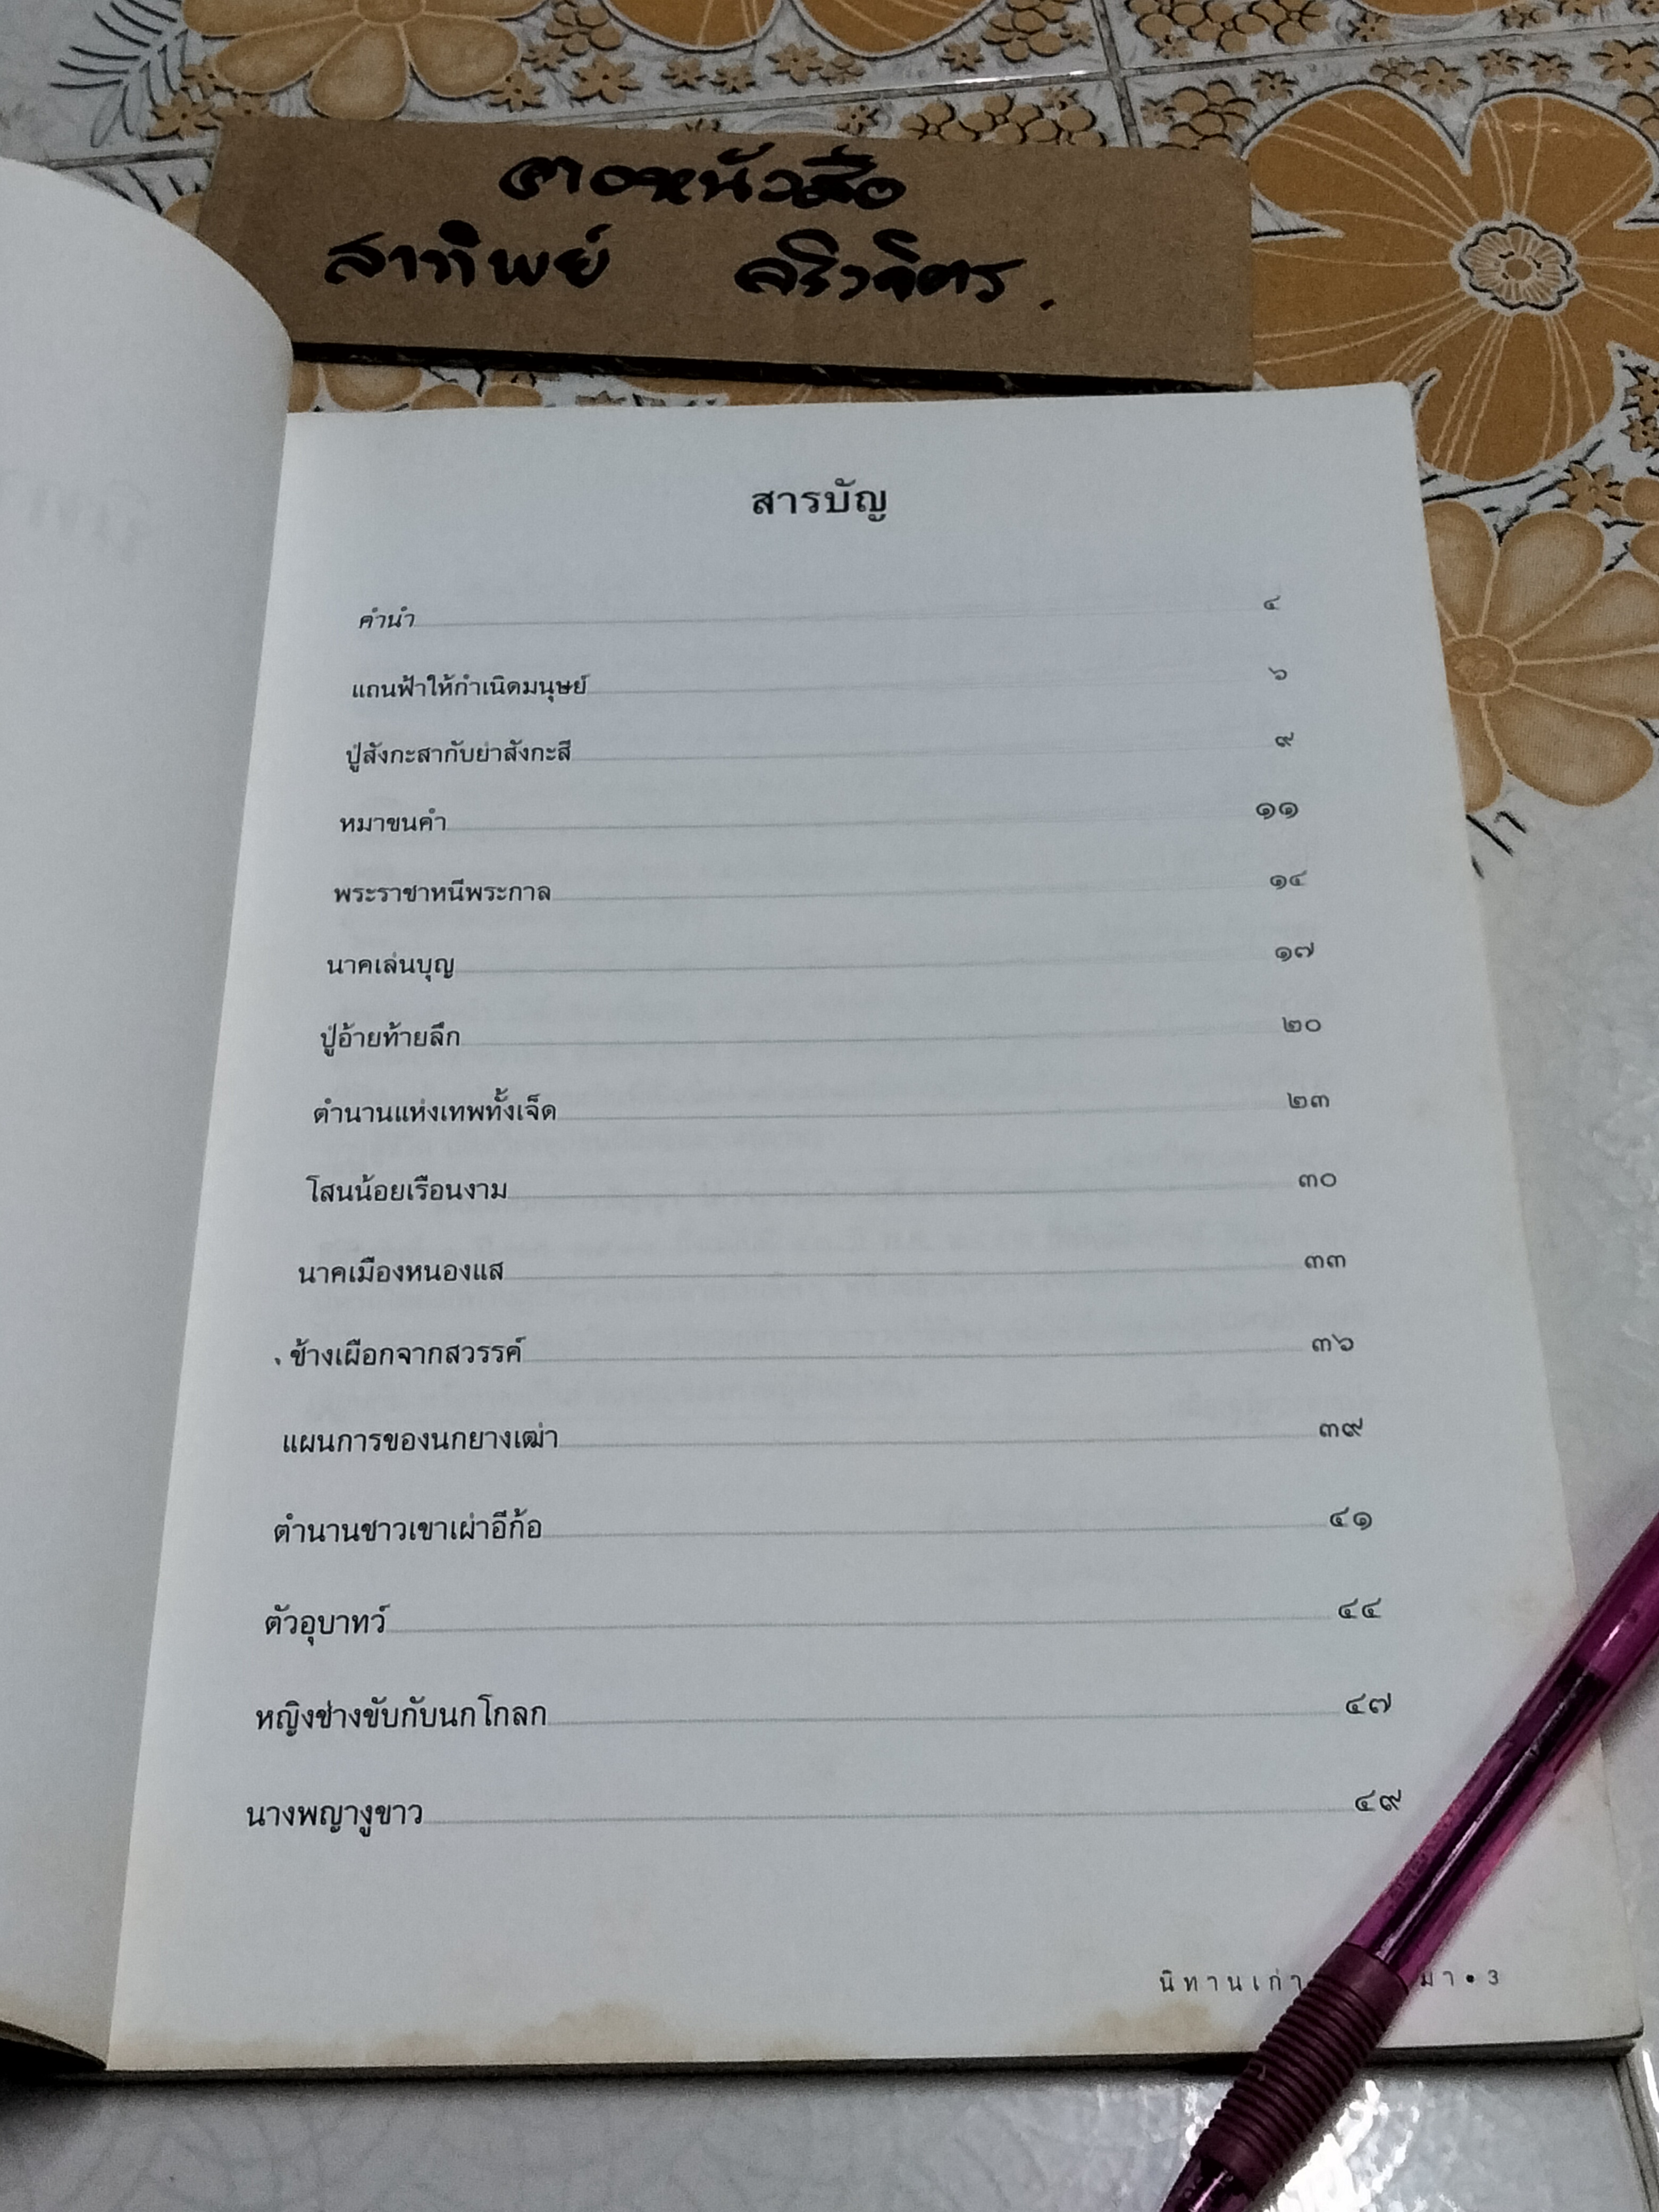 สาทิพย์
สารบัญ
คำนำ ๔
แถนฟ้าให้กำเนิดมนุษย์ ๖
ปู่สังกะสากับย่าสังกะสี ๙
หมาขนคำ ๑๑
พระราชาหนีพระกาล ๑๔
นาคเล่นบุญ ๑๗
ปู่อ้ายท้ายลึก ๒๐
ตำนานแห่งเทพทั้งเจ็ด ๒๓
โสนน้อยเรือนงาม ๓๐
นาคเมืองหนองแส ๓๓
ช้างเผือกจากสวรรค์ ๓๖
แผนการของนกยางเฒ่า ๓๙
ตำนานชาวเขาเผ่าอีก้อ ๔๑
ตัวอุบาทว์ ๔๔
หญิงช่างขับกับนกโกลก ๔๗
นางพญางูขาว ๔๙
นิทานเก่า มา • 3